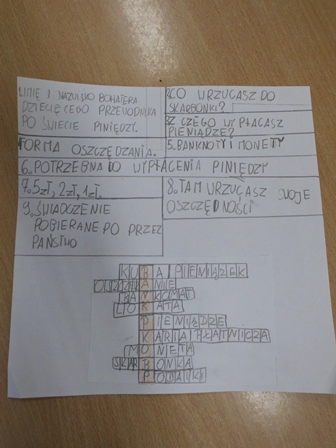 1. IMIĘ I NAZWISKO BOHATERA
DZIECIĘCEGO PRZEWODNIKA
PO ŚWIECIE PINIĘDZY.
2. CO WRZUCASZ DO
SKARBONKI?
3. Z CZEGO WYPŁACASZ
PIENIĄDZE?
FORMA OSZCZĘDZANIA.
5. BANKNOTY I MONETY
6. POTRZEBNA DO WYPŁACENIA PINIĘDZY
7. 5 zł, 2 zł, 1 zł,
8. TAM WRZUCASZ SWOJE
OSZCZĘDNOŚCI
9. ŚWIADCZENIE
POBIERANE PO PRZEZ
PAŃSTWO
KUBA PIENIĄŻEK
BANKOMAT
LOKATA
PIENIĄDZE
KARTA PŁATNICZA
MONETA
SKARBONKA